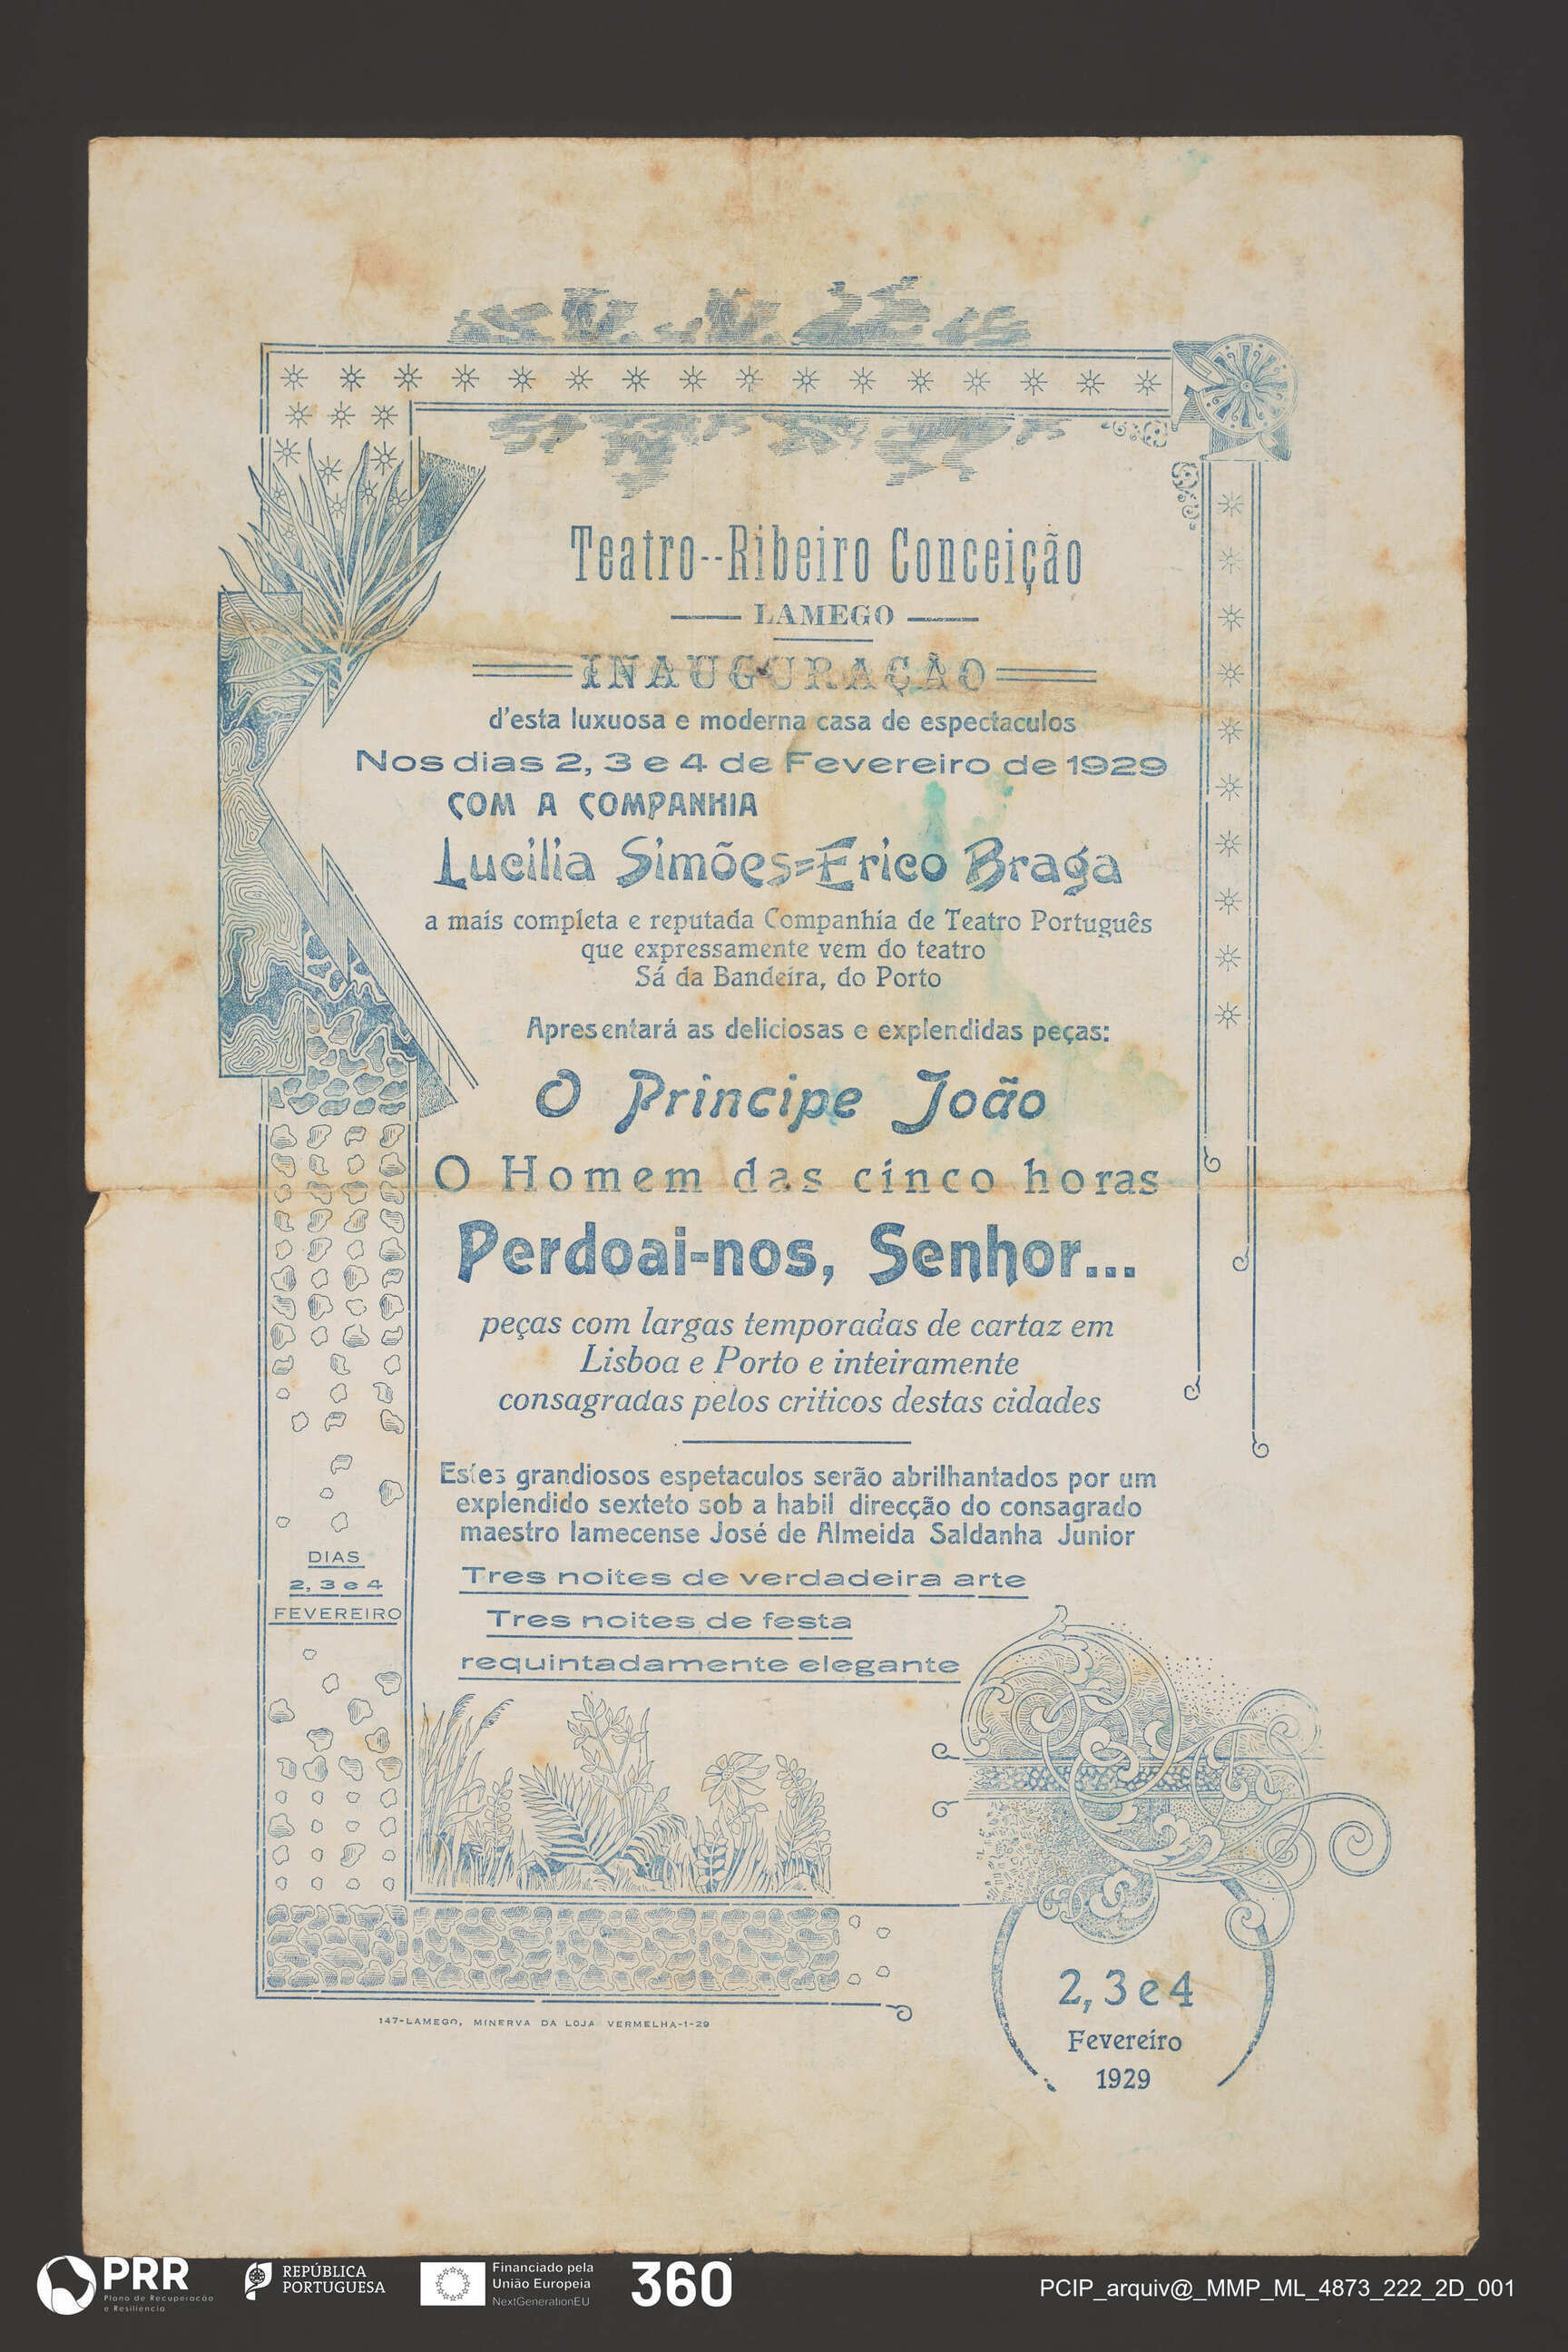 Teatro--Ribeiro Conceição
LAMEGO
INAUGURAÇÃO
d'esta luxuosa e moderna casa de espectaculos
Nos dias 2, 3 e 4 de Fevereiro de 1929
COM A COMPANHIA
Lucilia Simões=Erico Braga
a mais completa e reputada Companhia de Teatro Português
que expressamente vem do teatro
Sá da Bandeira, do Porto
Apresentará as deliciosas e explendidas peças:
O Principe João
O Homem das cinco horas
Perdoai-nos, Senhor...
peças com largas temporadas de cartaz em
Lisboa e Porto e inteiramente
consagradas pelos criticos destas cidades
Estes grandiosos espetaculos serão abrilhantados por um
explendido sexteto sob a habil direcção do consagrado
maestro lamecense José de Almeida Saldanha Junior
Tres noites de verdadeira arte
Tres noites de festa
requintadamente elegante
DIAS
2, 3 e 4
FEVEREIRO
2, 3 e 4
Fevereiro
1929
147-LAMEGO, MINERVA DA LOJA VERMELHA-1-29
PRR
Plano de Recuperação
e Resiliência
REPÚBLICA
PORTUGUESA
Financiado pela
União Europeia
NextGenerationEU
360
PCIP_arquiv@_MMP_ML_4873_222_2D_001